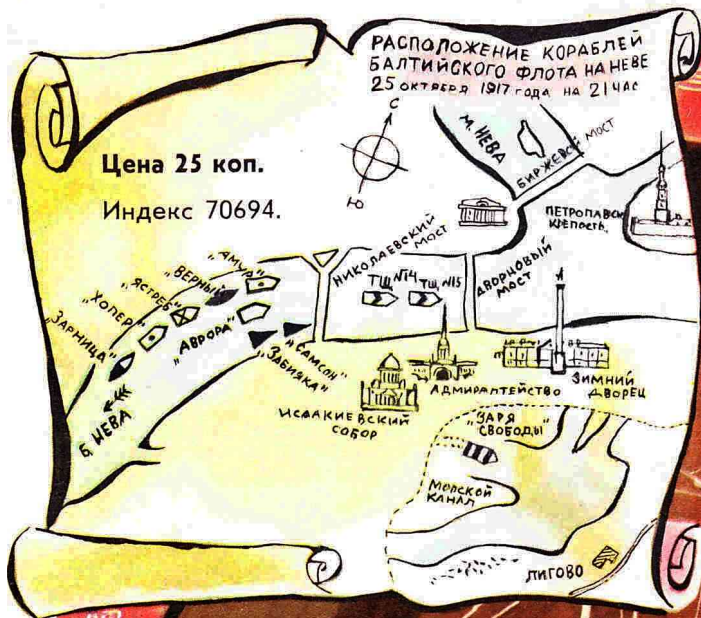 РАСПОЛОЖЕНИЕ КОРАБЛЕЙ
БАЛТИЙСКОГО ФЛОТА НА НЕВЕ
25 ОКТЯБРЯ 1917 ГОДА НА 21 ЧАС
С
Ю
Цена 25 коп.
Индекс 70694.
М. НЕВА
БИРЖЕВОЙ МОСТ
ПЕТРОПАВСК.
КРЕПОСТЬ.
НИКОЛАЕВСКИЙ
МОСТ
ДВОРЦОВЫЙ
МОСТ
ТЩ. №14
ТЩ. №15
"АМУР"
"ВЕРНЫЙ"
"ЯСТРЕБ"
"ХОПЕР"
"ЗАРНИЦА"
"АВРОРА"
"САМСОН"
"ЗАБИЯКА"
Б. НЕВА
ИСААКИЕВСКИЙ
СОБОР
АДМИРАЛТЕЙСТВО
ЗИМНИЙ
ДВОРЕЦ
"ЗАРЯ
СВОБОДЫ"
МОРСКОЙ
КАНАЛ
ЛИГОВО